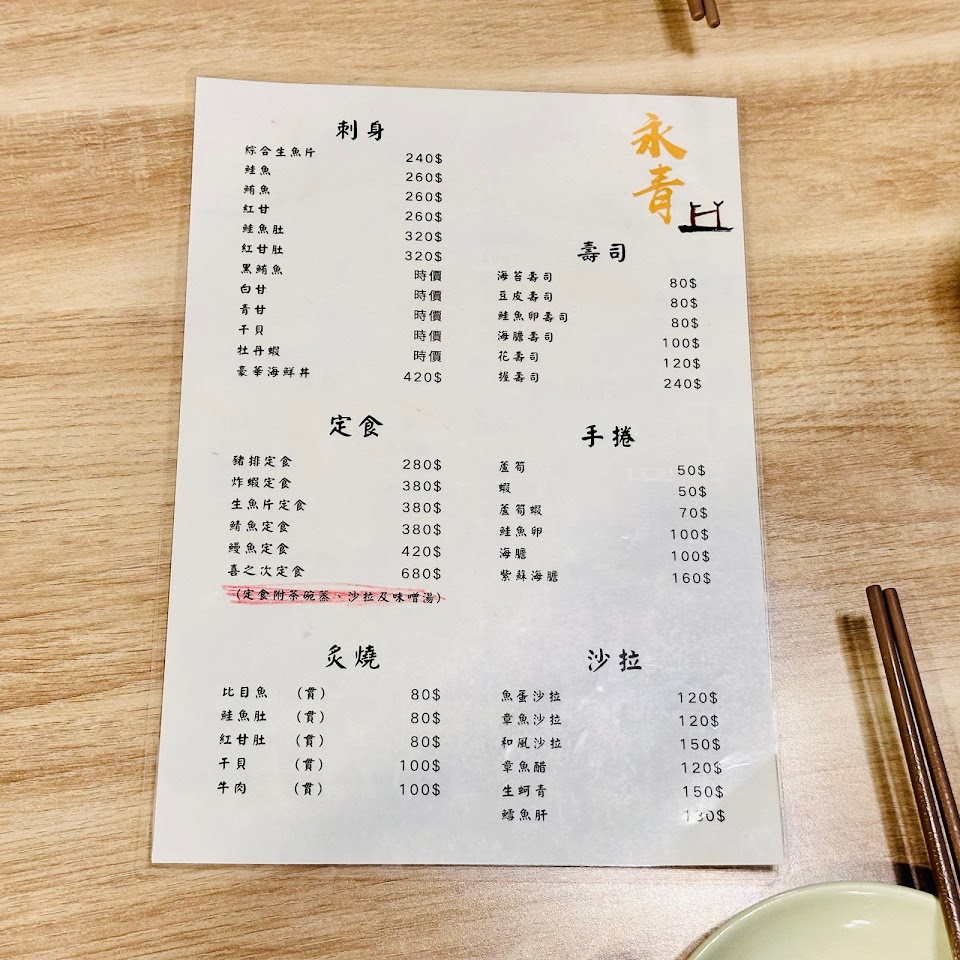 永青
刺身
綜合生魚片 240$
鮭魚 260$
鮪魚 260$
紅甘 260$
鮭魚肚 320$
紅甘肚 320$
黑鮪魚 時價
白甘 時價
青甘 時價
干貝 時價
牡丹蝦 時價
豪華海鮮丼 420$
定食
豬排定食 280$
炸蝦定食 380$
生魚片定食 380$
鯖魚定食 380$
鰻魚定食 420$
喜之次定食 680$
(定食附茶碗蒸、沙拉及味噌湯)
炙燒
比目魚 (貫) 80$
鮭魚肚 (貫) 80$
紅甘肚 (貫) 80$
干貝 (貫) 100$
牛肉 (貫) 100$
壽司
海苔壽司 80$
豆皮壽司 80$
鮭魚卵壽司 80$
海膽壽司 100$
花壽司 120$
握壽司 240$
手捲
蘆筍 50$
蝦 50$
蘆筍蝦 70$
鮭魚卵 100$
海膽 100$
紫蘇海膽 160$
沙拉
魚蛋沙拉 120$
章魚沙拉 120$
和風沙拉 150$
章魚醋 120$
生蚵青 150$
鱈魚肝